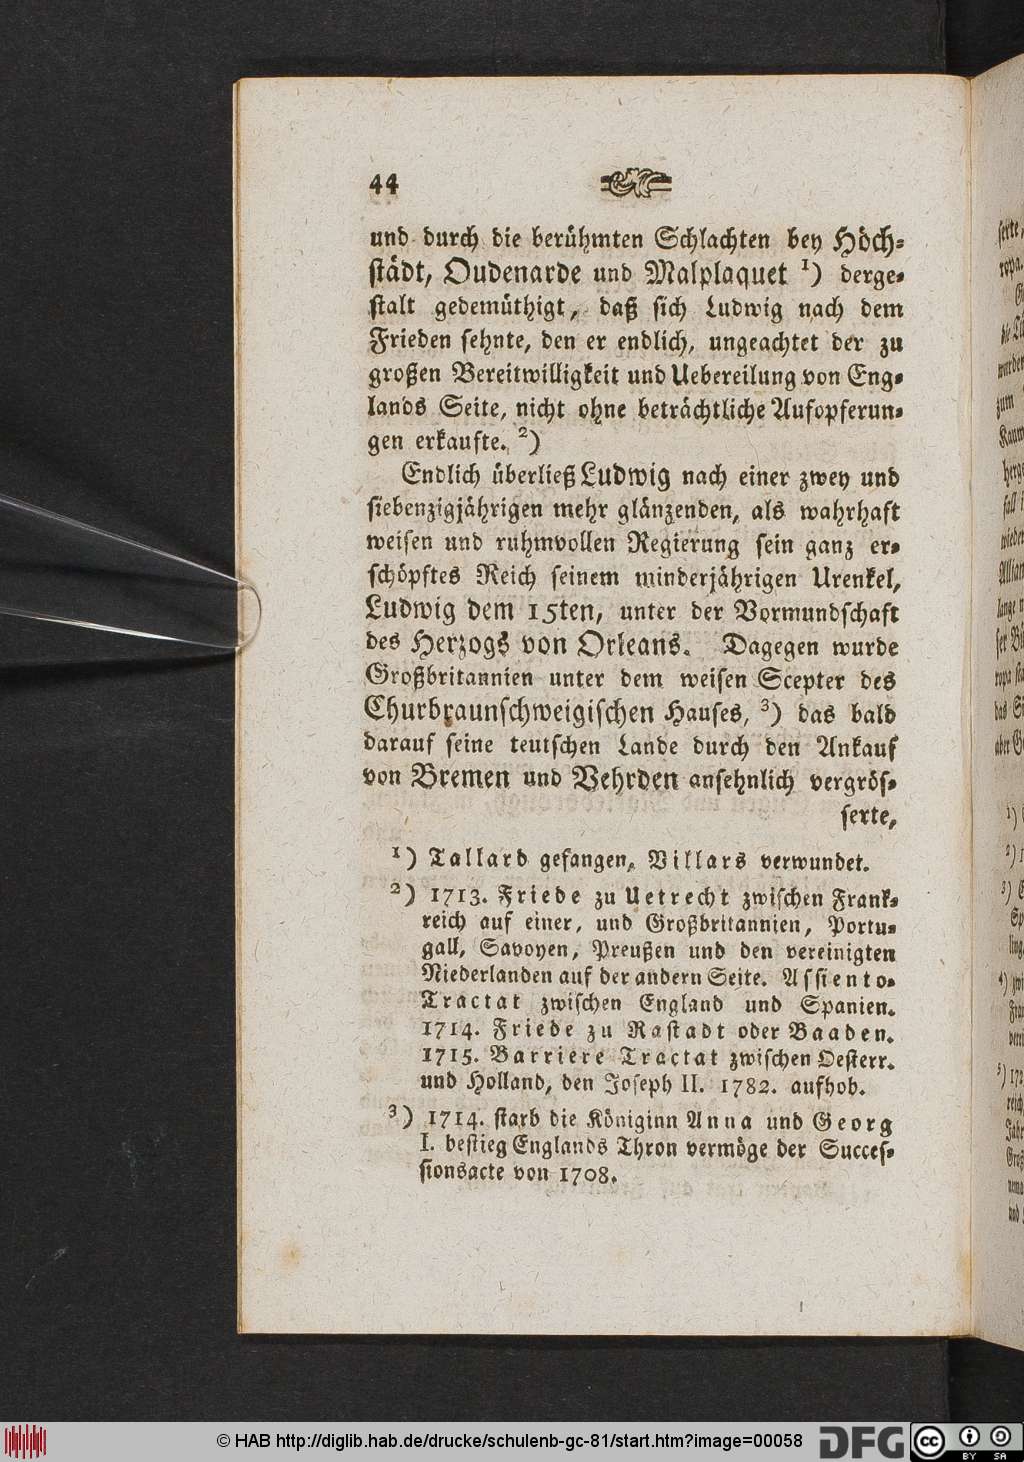 44
und durch die berühmten Schlachten bey Höch-
städt, Oudenarde und Malplaquet ¹) derge-
stalt gedemüthigt, daß sich Ludwig nach dem
Frieden sehnte, den er endlich, ungeachtet der zu
großen Bereitwilligkeit und Uebereilung von Eng-
lands Seite, nicht ohne beträchtliche Aufopferun-
gen erkaufte. ²)
Endlich überließ Ludwig nach einer zwey und
siebenzigjährigen mehr glänzenden, als wahrhaft
weisen und ruhmvollen Regierung sein ganz er-
schöpftes Reich seinem minderjährigen Urenkel,
Ludwig dem 15ten, unter der Vormundschaft
des Herzogs von Orleans. Dagegen wurde
Großbritannien unter dem weisen Scepter des
Churbraunschweigischen Hauses, ³) das bald
darauf seine teutschen Lande durch den Ankauf
von Bremen und Vehrden ansehnlich vergrös-
serte,
¹) Tallard gefangen, Villars verwundet.
²) 1713. Friede zu Uetrecht zwischen Frank-
reich auf einer, und Großbritannien, Portu-
gall, Savoyen, Preußen und den vereinigten
Niederlanden auf der andern Seite. Assiento-
Tractat zwischen England und Spanien.
1714. Friede zu Rastadt oder Baaden.
1715. Barriere Tractat zwischen Oesterr.
und Holland, den Joseph II. 1782. aufhob.
³) 1714. starb die Königinn Anna und Georg
I. bestieg Englands Thron vermöge der Succes-
sionsacte von 1708.
© HAB http://diglib.hab.de/drucke/schulenb-gc-81/start.htm?image=00058
DFG
cc
BY SA